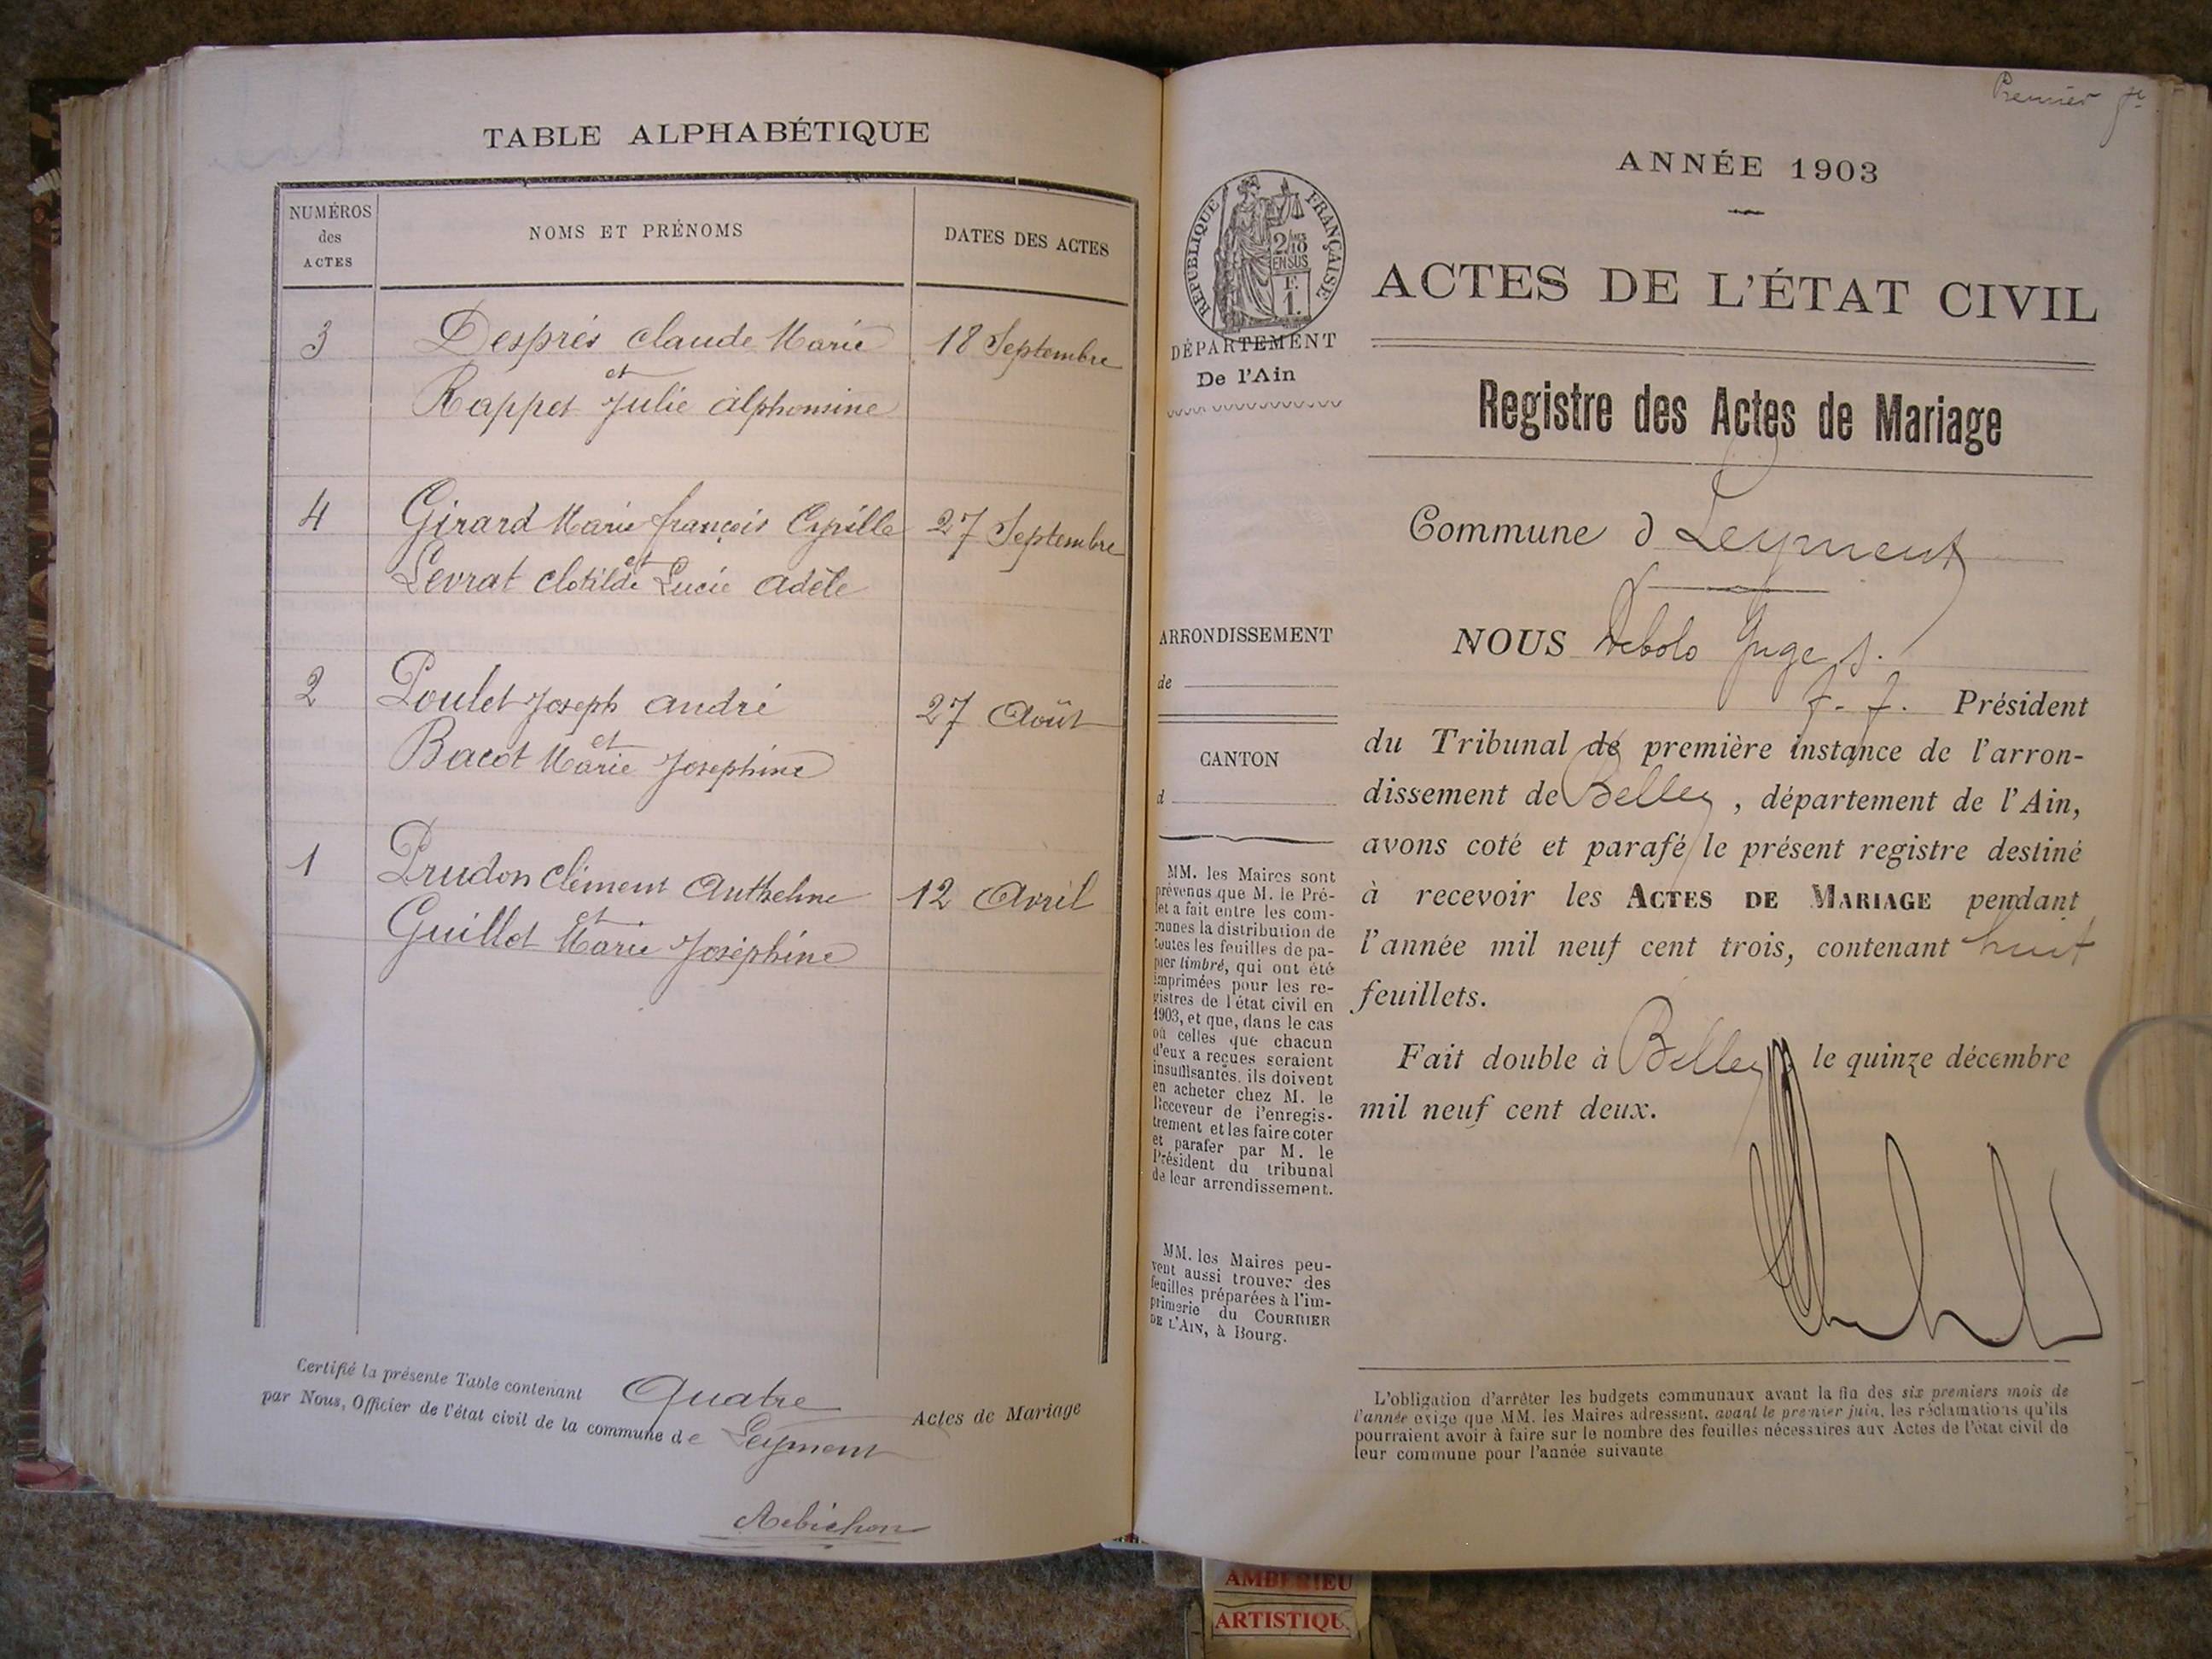 TABLE ALPHABÉTIQUE
NUMÉROS
des
ACTES
NOMS ET PRÉNOMS
DATES DES ACTES
3 Després Claude Marie 18 Septembre
et
Rappet Julie Alphonsine
4 Girard Marie François 27 Septembre
et
Levrat Clotilde Lucie Adèle
2 Poulet Joseph André 27 Août
et
Bacot Marie Josephine
1 Prudon Clément Anthelme 12 Avril
et
Guillot Marie Joséphine
Certifié la présente Table contenant Quatre Actes de Mariage
par Nous, Officier de l'état civil de la commune de Leyment
Premier
ANNÉE 1903
RÉPUBLIQUE FRANÇAISE
2/10
EN SUS
F.
1.
DÉPARTEMENT
De l'Ain
ACTES DE L'ÉTAT CIVIL
Registre des Actes de Mariage
Commune d Leyment
ARRONDISSEMENT
de
CANTON
d
MM. les Maires sont
prévenus que M. le Pré-
fet a fait entre les com-
munes la distribution de
toutes les feuilles de pa-
pier timbré, qui ont été
imprimées pour les re-
gistres de l'état civil en
1903, et que, dans le cas
où celles que chacun
d'eux a reçues seraient
insuffisantes, ils doivent
en acheter chez M. le
Receveur de l'enregis-
trement et les faire coter
et parafer par M. le
Président du tribunal
de leur arrondissement.
MM. les Maires peu-
vent aussi trouver des
feuilles préparées à l'im-
primerie du COURRIER
DE L'AIN, à Bourg.
NOUS Debolo Juge s.
f. f. Président
du Tribunal de première instance de l'arron-
dissement de Belley, département de l'Ain,
avons coté et parafé le présent registre destiné
à recevoir les ACTES DE MARIAGE pendant
l'année mil neuf cent trois, contenant huit
feuillets.
Fait double à Belley le quinze décembre
mil neuf cent deux.
L'obligation d'arrêter les budgets communaux avant la fin des six premiers mois de
l'année exige que MM. les Maires adressent, avant le premier juin, les réclamations qu'ils
pourraient avoir à faire sur le nombre des feuilles nécessaires aux Actes de l'état civil de
leur commune pour l'année suivante
AMBERIEU
ARTISTIQU